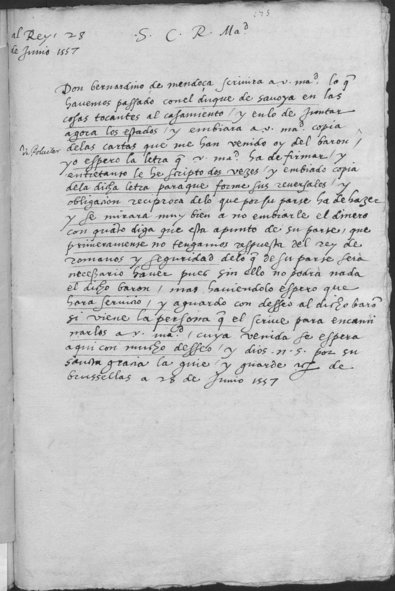 al Rey, 28
de Junio 1557
.S. C. R. Mad
Don bernardino de mendoça scrivira a v. mad. lo q
havemos passado con el duque de savoya en las
cosas tocantes al casamiento, y en lo de juntar
agora los estados, y embiara a v. mad. copia
de las cartas que me han venido oy del baron,
yo espero la letra q v. mad. ha de firmar, y
entretanto le he scripto dos vezes, y embiado copia
de la dicha letra para que forme sus reversales, y
obligacion reciproca de lo que por su parte ha de hazer
y se mirara muy bien a no embiarle el dinero
con quanto diga que esta apunto de su parte, que
primeramente no tengamos respuesta del rey de
romanos y seguridad de lo q de su parte sera
necessario haver pues sin ello no podra nada
el dicho baron, mas haviendolo espero que
hara servicio, y aguardo con desseo al dicho baron
si viene la persona q el scrive para encami
narlos a v. mad., cuya venida se espera
aqui con mucho desseo, y dios n. s. por su
sancta gracia la guie, y guarde de
brussellas a 28 de Junio 1557